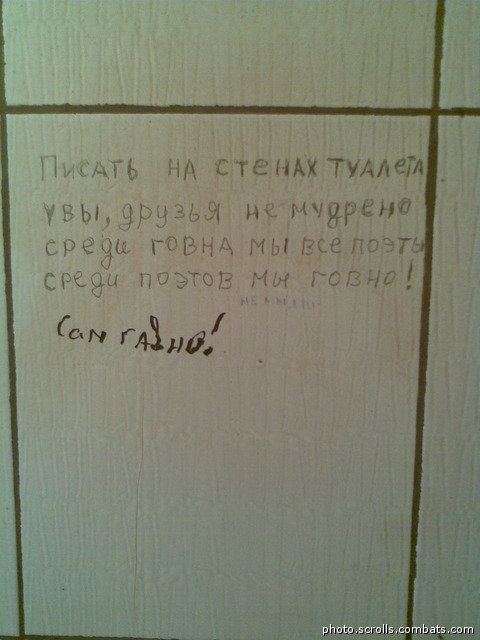 Писать на стенах туалета
увы, друзья не мудрено
среди говна мы все поэты
среди поэтов мы говно!
Сам гавно!
photo.scrolls.combats.com